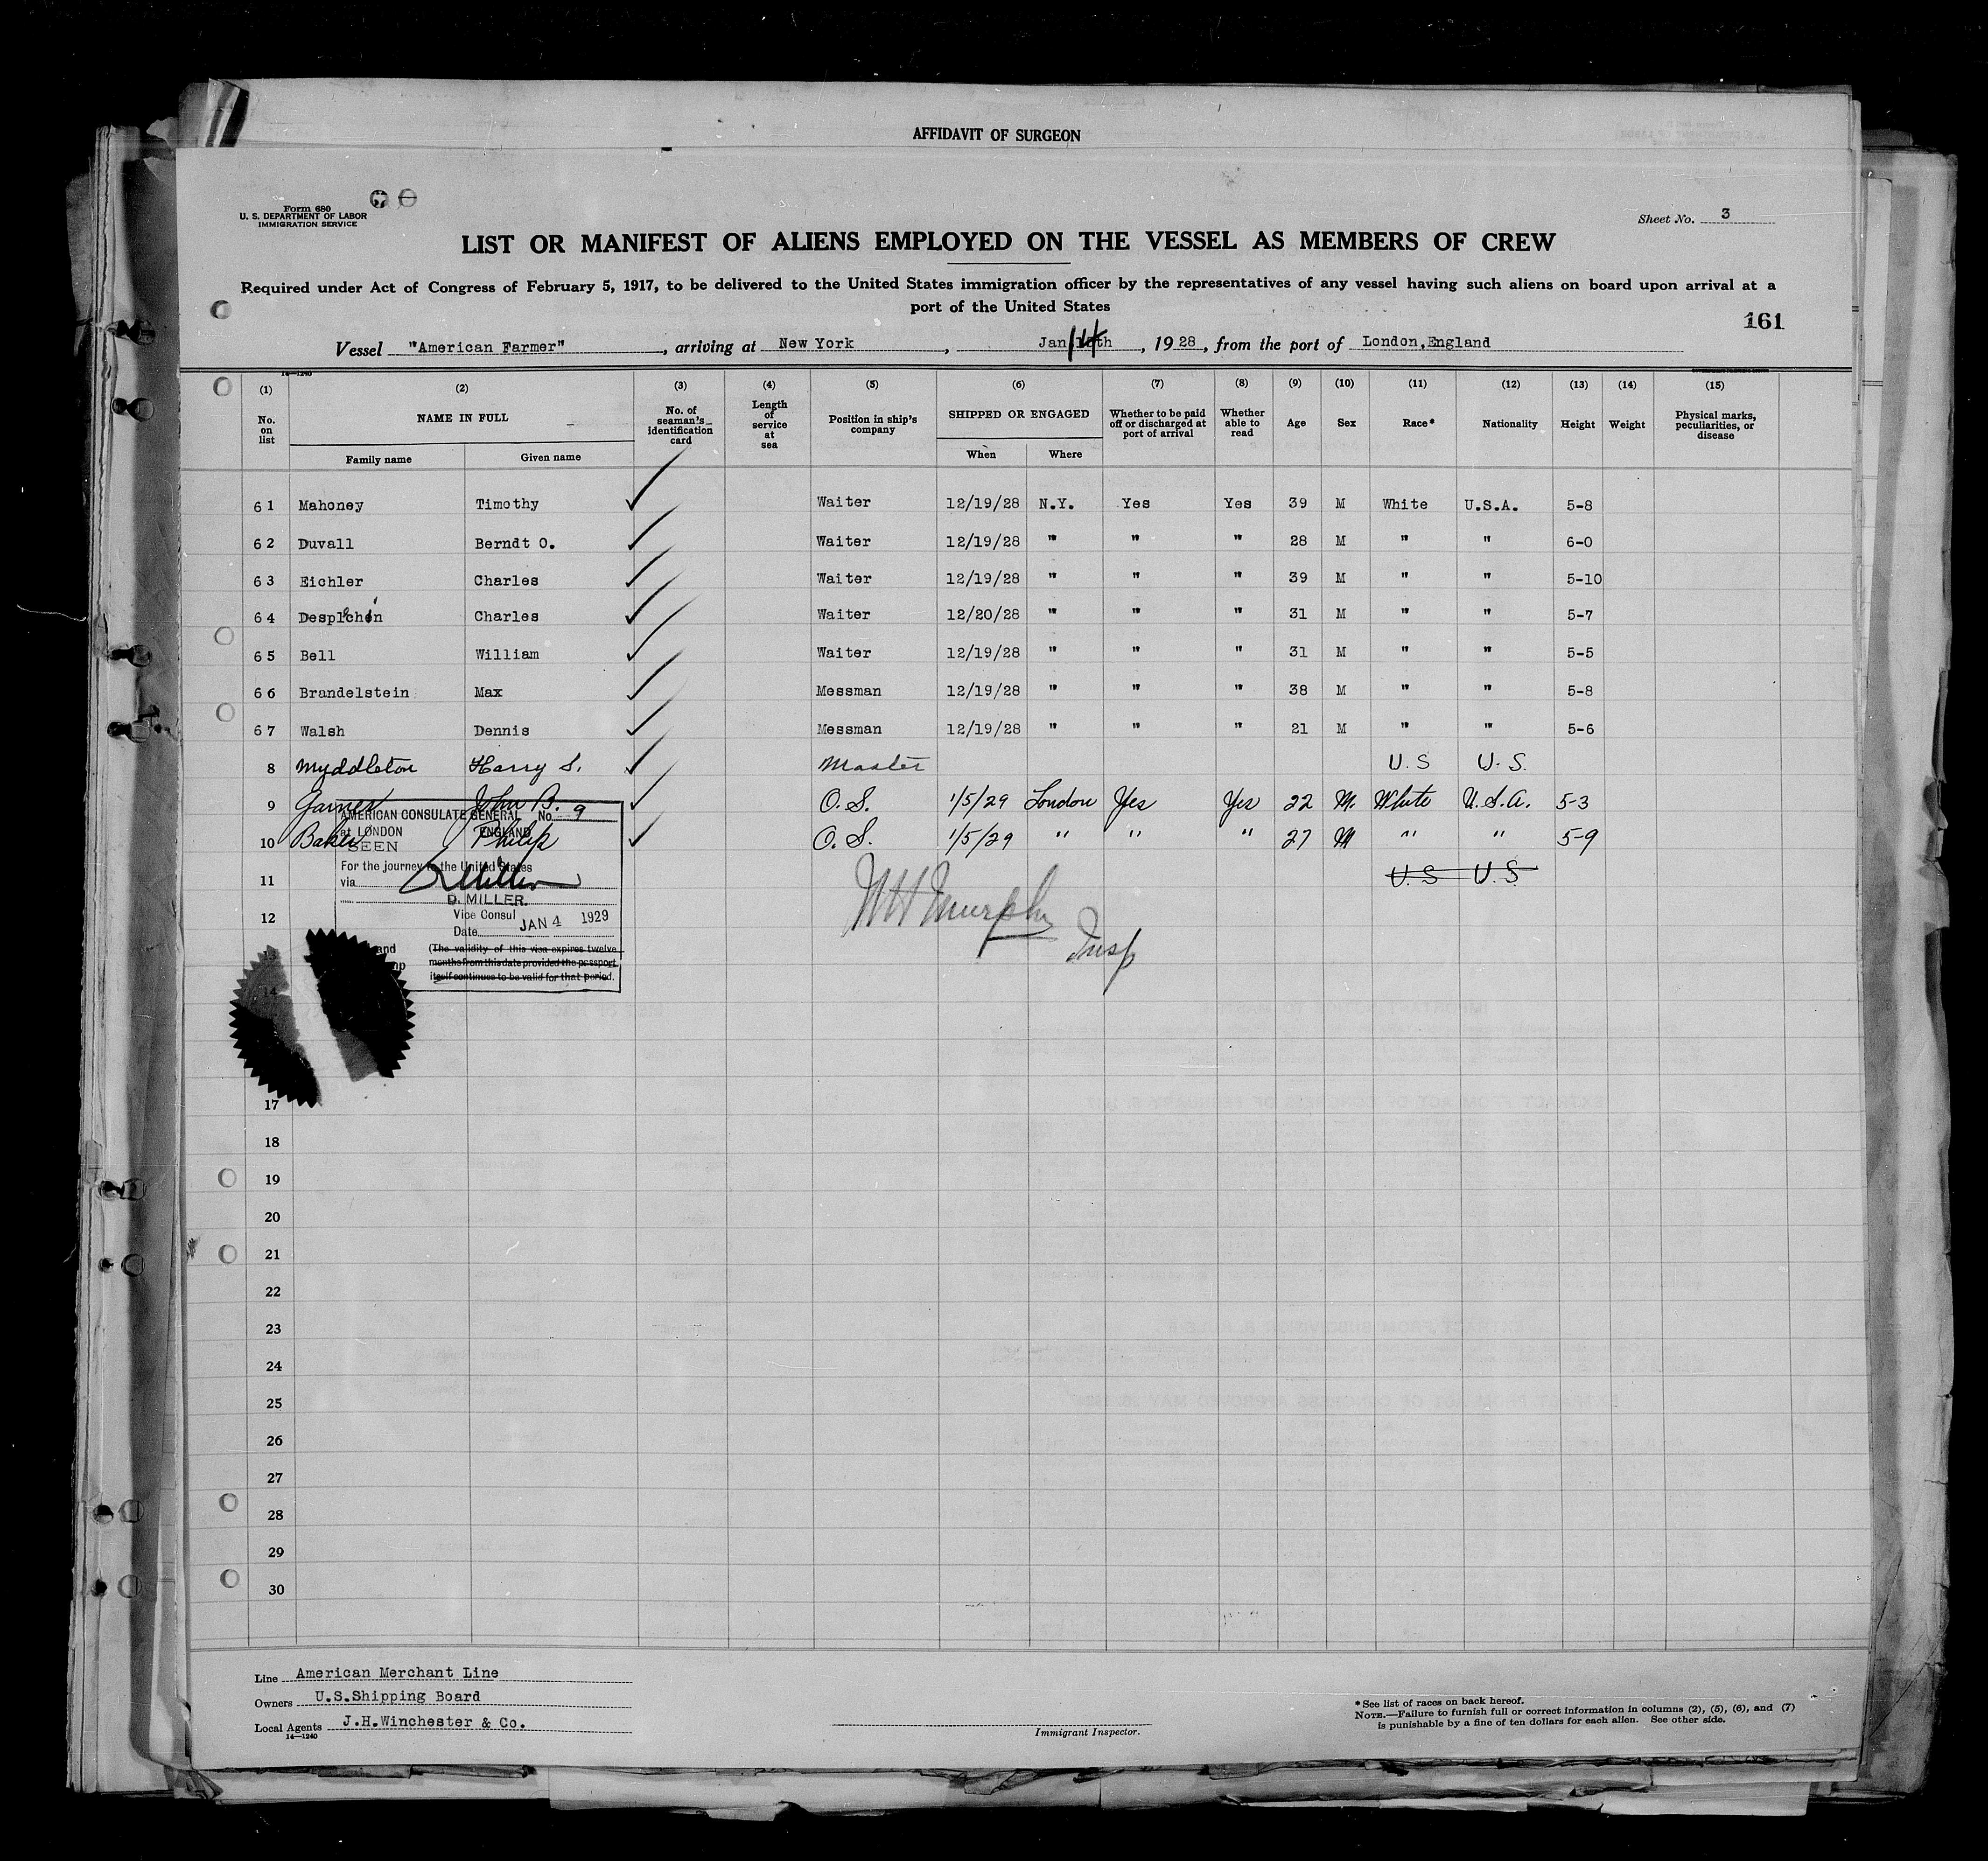 AFFIDAVIT OF SURGEON
Form 680
U. S. DEPARTMENT OF LABOR
IMMIGRATION SERVICE
Sheet No. 3
LIST OR MANIFEST OF ALIENS EMPLOYED ON THE VESSEL AS MEMBERS OF CREW
Required under Act of Congress of February 5, 1917, to be delivered to the United States immigration officer by the representatives of any vessel having such aliens on board upon arrival at a
port of the United States
161
Vessel "American Farmer", arriving at New York, Jan 14th, 1928, from the port of London, England
14—1240
(1) (2) (3) (4) (5) (6) (7) (8) (9) (10) (11) (12) (13) (14) (15)
No. on list NAME IN FULL No. of seaman's identification card Length of service at sea Position in ship's company SHIPPED OR ENGAGED Whether to be paid off or discharged at port of arrival Whether able to read Age Sex Race* Nationality Height Weight Physical marks, peculiarities, or disease
Family name Given name When Where
61 Mahoney Timothy Waiter 12/19/28 N.Y. Yes Yes 39 M White U.S.A. 5-8
62 Duvall Berndt O. Waiter 12/19/28 " " " 28 M " " 6-0
63 Eichler Charles Waiter 12/19/28 " " " 39 M " " 5-10
64 Desplechin Charles Waiter 12/20/28 " " " 31 M " " 5-7
65 Bell William Waiter 12/19/28 " " " 31 M " " 5-5
66 Brandelstein Max Messman 12/19/28 " " " 38 M " " 5-8
67 Walsh Dennis Messman 12/19/28 " " " 21 M " " 5-6
8 Myddleton Harry S. Master U.S U.S.
9 Garner John B. O.S. 1/5/29 London Yes Yes 22 M. White U.S.A. 5-3
10 Baker Philip O.S. 1/5/29 " " " 27 M " " 5-9
11 U.S U.S
12
AMERICAN CONSULATE GENERAL No. 9
at LONDON ENGLAND
SEEN
For the journey to the United States
via
D Miller
D. MILLER.
Vice Consul
Date JAN 4 1929
(The validity of this visa expires twelve
months from this date provided the passport
itself continues to be valid for that period.
and
WH Murphy
Insp
14
17
18
19
20
21
22
23
24
25
26
27
28
29
30
Line American Merchant Line
Owners U.S.Shipping Board
Local Agents J.H.Winchester & Co.
14—1240
Immigrant Inspector.
*See list of races on back hereof.
NOTE.—Failure to furnish full or correct information in columns (2), (5), (6), and (7)
is punishable by a fine of ten dollars for each alien. See other side.